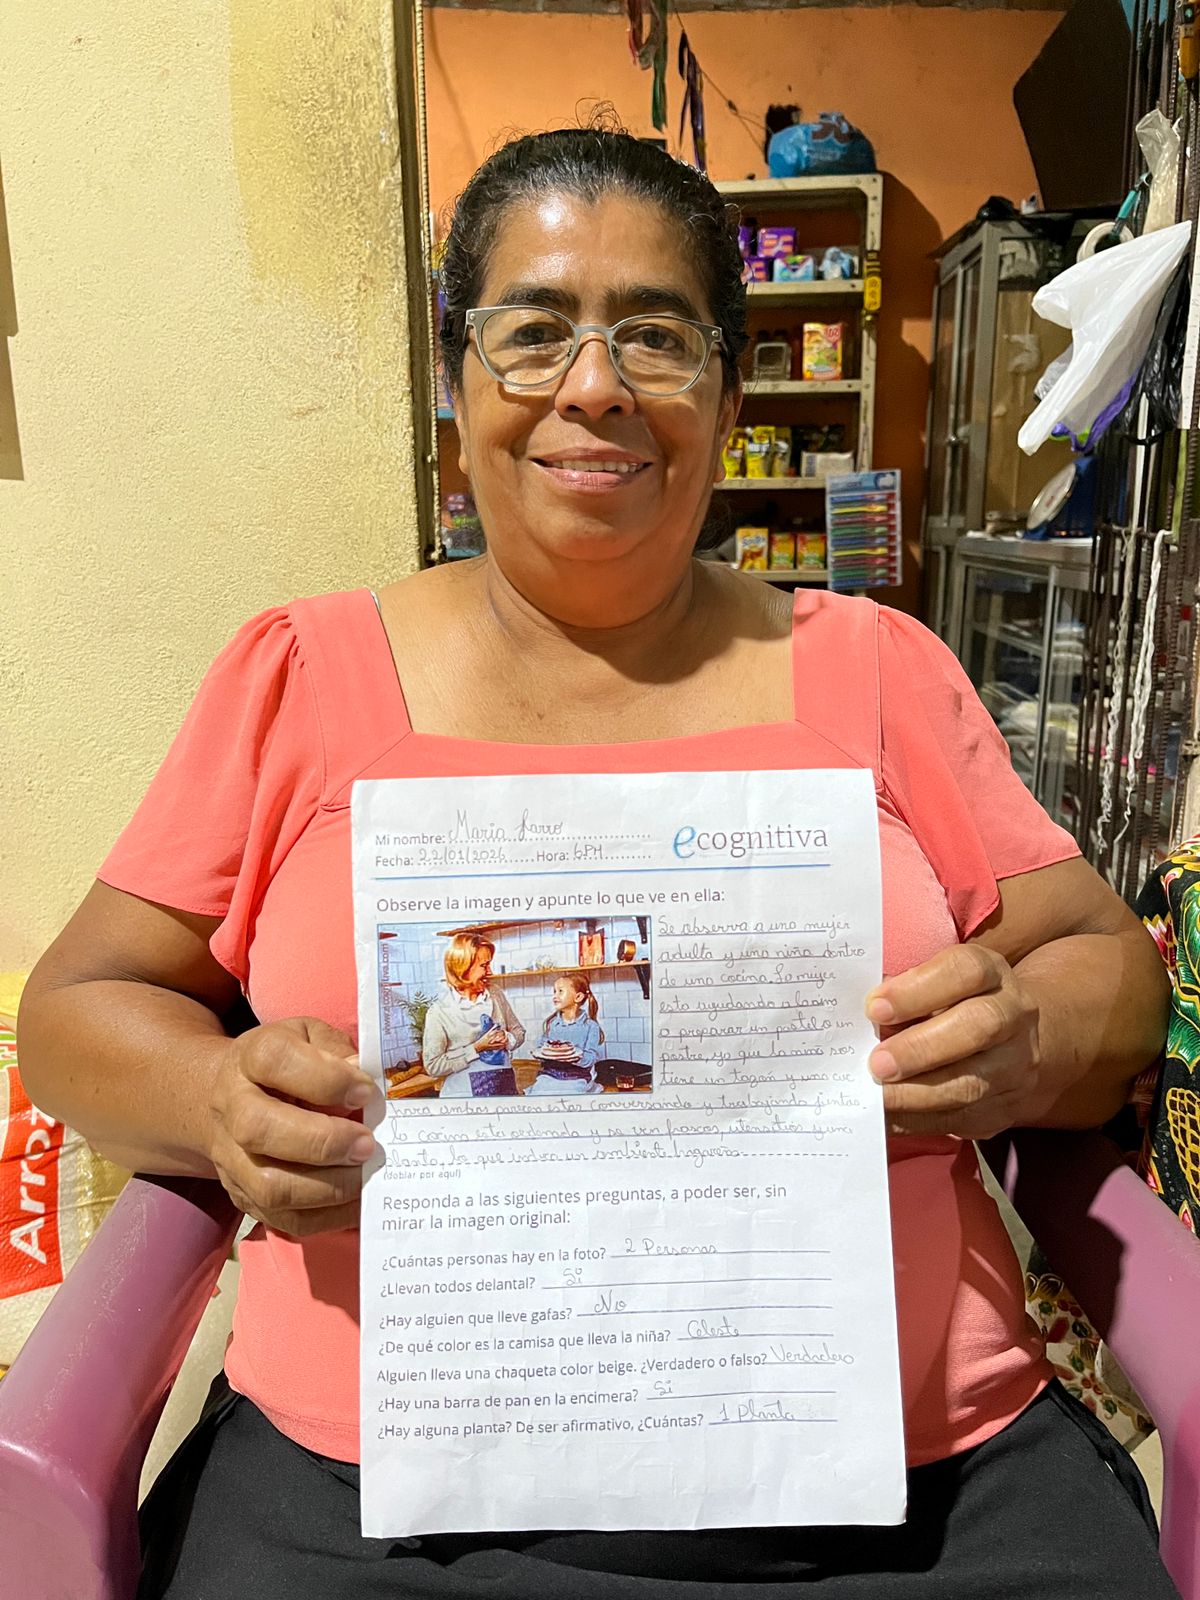 Mi nombre: Maria Jarro
Fecha: 22/01/2026 Hora: 6PM
ecognitiva
Observe la imagen y apunte lo que ve en ella:
www.ecognitiva.com
Se observa a una mujer
adulta y una niña dentro
de una cocina. La mujer
esta ayudando a la niñ
a preparar un pastel o un
postre, ya que la niña sos
tiene un tazón y una cuc
hara ambas parecen estar conversando y trabajando juntas.
la cocina esta ordenada y se ven frascos, utensilios y una
planta, lo que indica un ambiente hogareño
(doblar por aquí)
Responda a las siguientes preguntas, a poder ser, sin
mirar la imagen original:
¿Cuántas personas hay en la foto? 2 Personas
¿Llevan todos delantal? Si
¿Hay alguien que lleve gafas? No
¿De qué color es la camisa que lleva la niña? Celeste
Alguien lleva una chaqueta color beige. ¿Verdadero o falso? Verdadero
¿Hay una barra de pan en la encimera? Si
¿Hay alguna planta? De ser afirmativo, ¿Cuántas? 1 Planta
Arroz